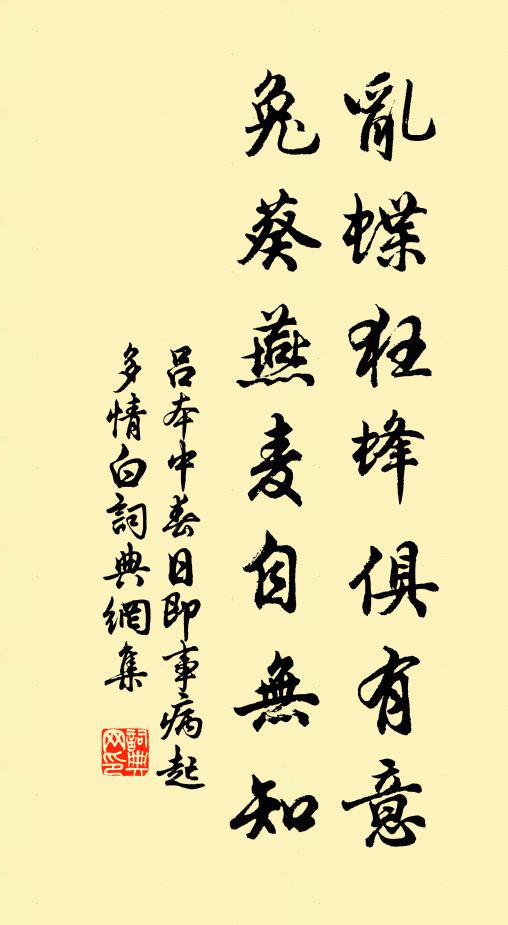 亂蝶狂蜂俱有意
兔葵燕麦自無知
呂本中春日即事病起
多情白詞典網集
詞典网印